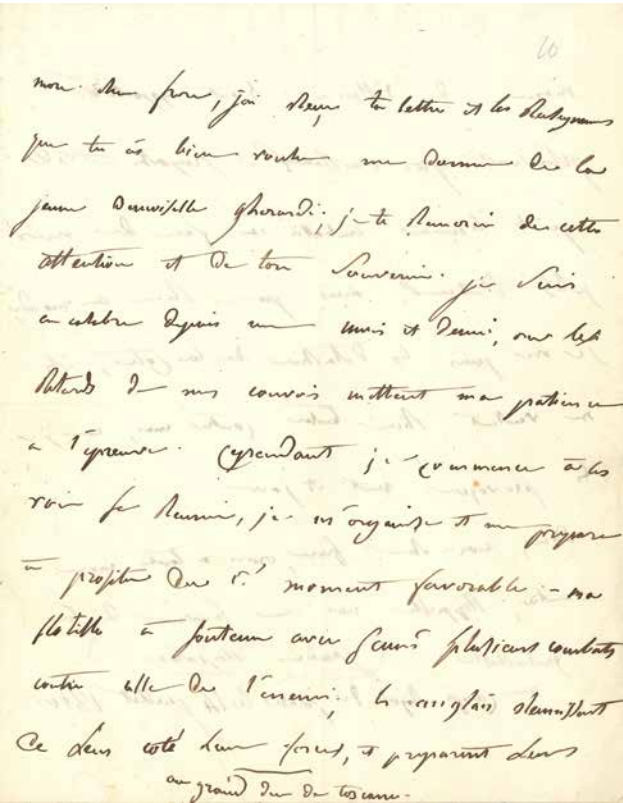 20
mon cher frere, j'ai reçu ta lettre et les Renseignemens
que tu as bien voulu me donner de la
jeune Demoiselle gherardi; je te Remercie de cette
attention et de ton Souvenir. je Suis
en calabre depuis un mois et Demi, ou les
Retards de mes convois mettent ma patience
a l'epreuve. Cependant je commence à les
voir se Reunir, je m'organise et me prepare
à profiter du 1.er moment favorable - ma
flotille à soutenu avec succès plusieurs combats
contre celle de l'ennemi; les anglais reunissent
De Leur coté Leurs forces, et preparent Leurs
au grand Duc de toscane.